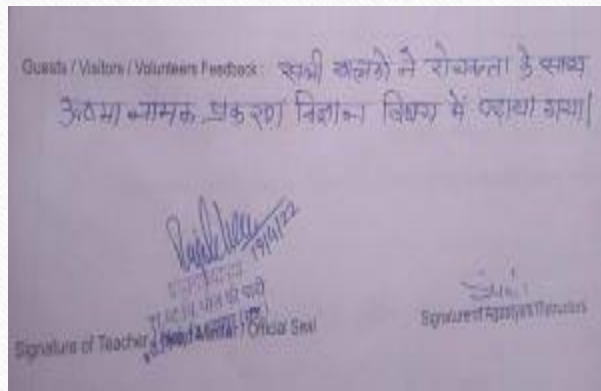 Guests / Visitors / Volunteers Feedback : सभी बालकों ने रोचकता के साथ
ऊष्मा नामक प्रकरण विज्ञान विषय में पढ़ाया गया।
19/4/22
Signature of Teacher / Head Master / Official Seal
Signature of Agastya's Instructors